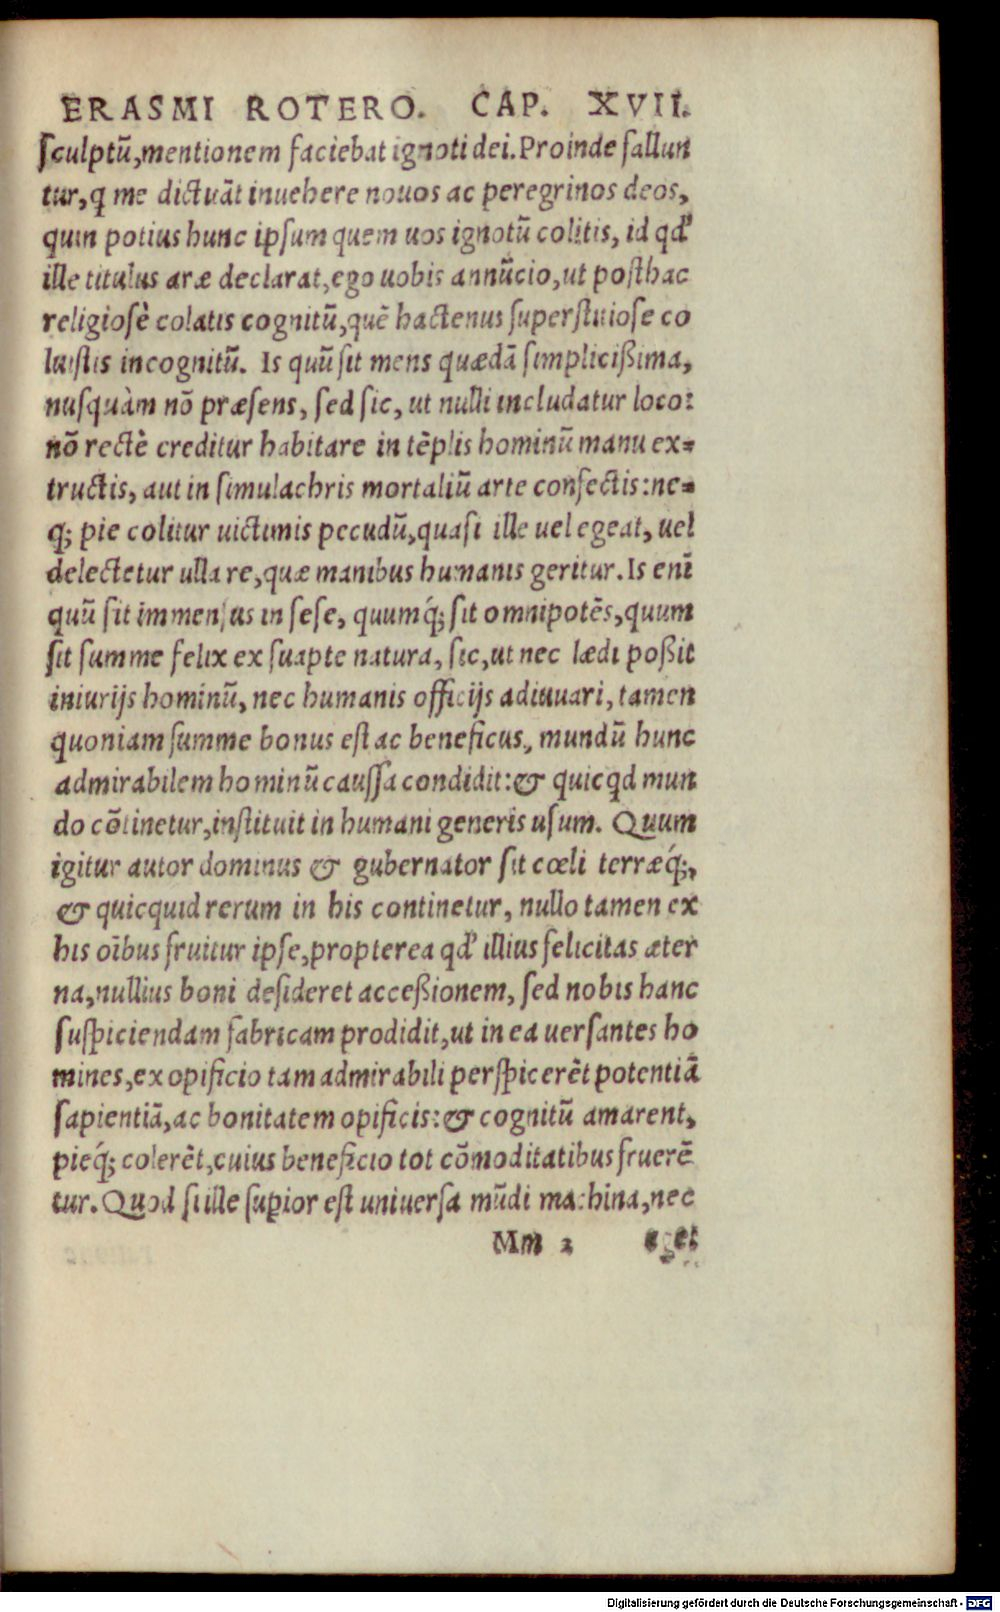 ERASMI ROTERO. CAP. XVII.
sculptū,mentionem faciebat ignoti dei.Proinde fallun
tur,q me dictitāt inuehere nouos ac peregrinos deos,
quin potius hunc ipsum quem uos ignotū colitis, id qd'
ille titulus aræ declarat,ego uobis annūcio,ut posthac
religiosè colatis cognitū,quē hactenus superstitiose co
luistis incognitū. Is quū sit mens quædā simplicißima,
nusquàm nō præsens, sed sic, ut nulli includatur loco:
nō rectè creditur habitare in tēplis hominū manu ex=
tructis, aut in simulachris mortaliū arte confectis:ne=
q; pie colitur uictimis pecudū,quasi ille uel egeat, uel
delectetur ulla re,quæ manibus humanis geritur.Is enī
quū sit immensus in sese, quumq́; sit omnipotēs,quum
sit summe felix ex suapte natura, sic,ut nec lædi poßit
iniurijs hominū, nec humanis officijs adiuuari, tamen
quoniam summe bonus est ac beneficus, mundū hunc
admirabilem hominū caussa condidit:& quicqd mun
do cōtinetur,instituit in humani generis usum. Quum
igitur autor dominus & gubernator sit cœli terræq́;,
& quicquid rerum in his continetur, nullo tamen ex
his oībus fruitur ipse,propterea qd' illius felicitas æter
na,nullius boni desideret acceßionem, sed nobis hanc
suspiciendam fabricam prodidit,ut in ea uersantes ho
mines,ex opificio tam admirabili perspicerēt potentiā
sapientiā,ac bonitatem opificis:& cognitū amarent,
pieq́; colerēt,cuius beneficio tot cōmoditatibus fruerē
tur. Quod si ille supior est uniuersa mūdi machina,nec
Mm 2 eget
Digitalisierung gefördert durch die Deutsche Forschungsgemeinschaft - DFG